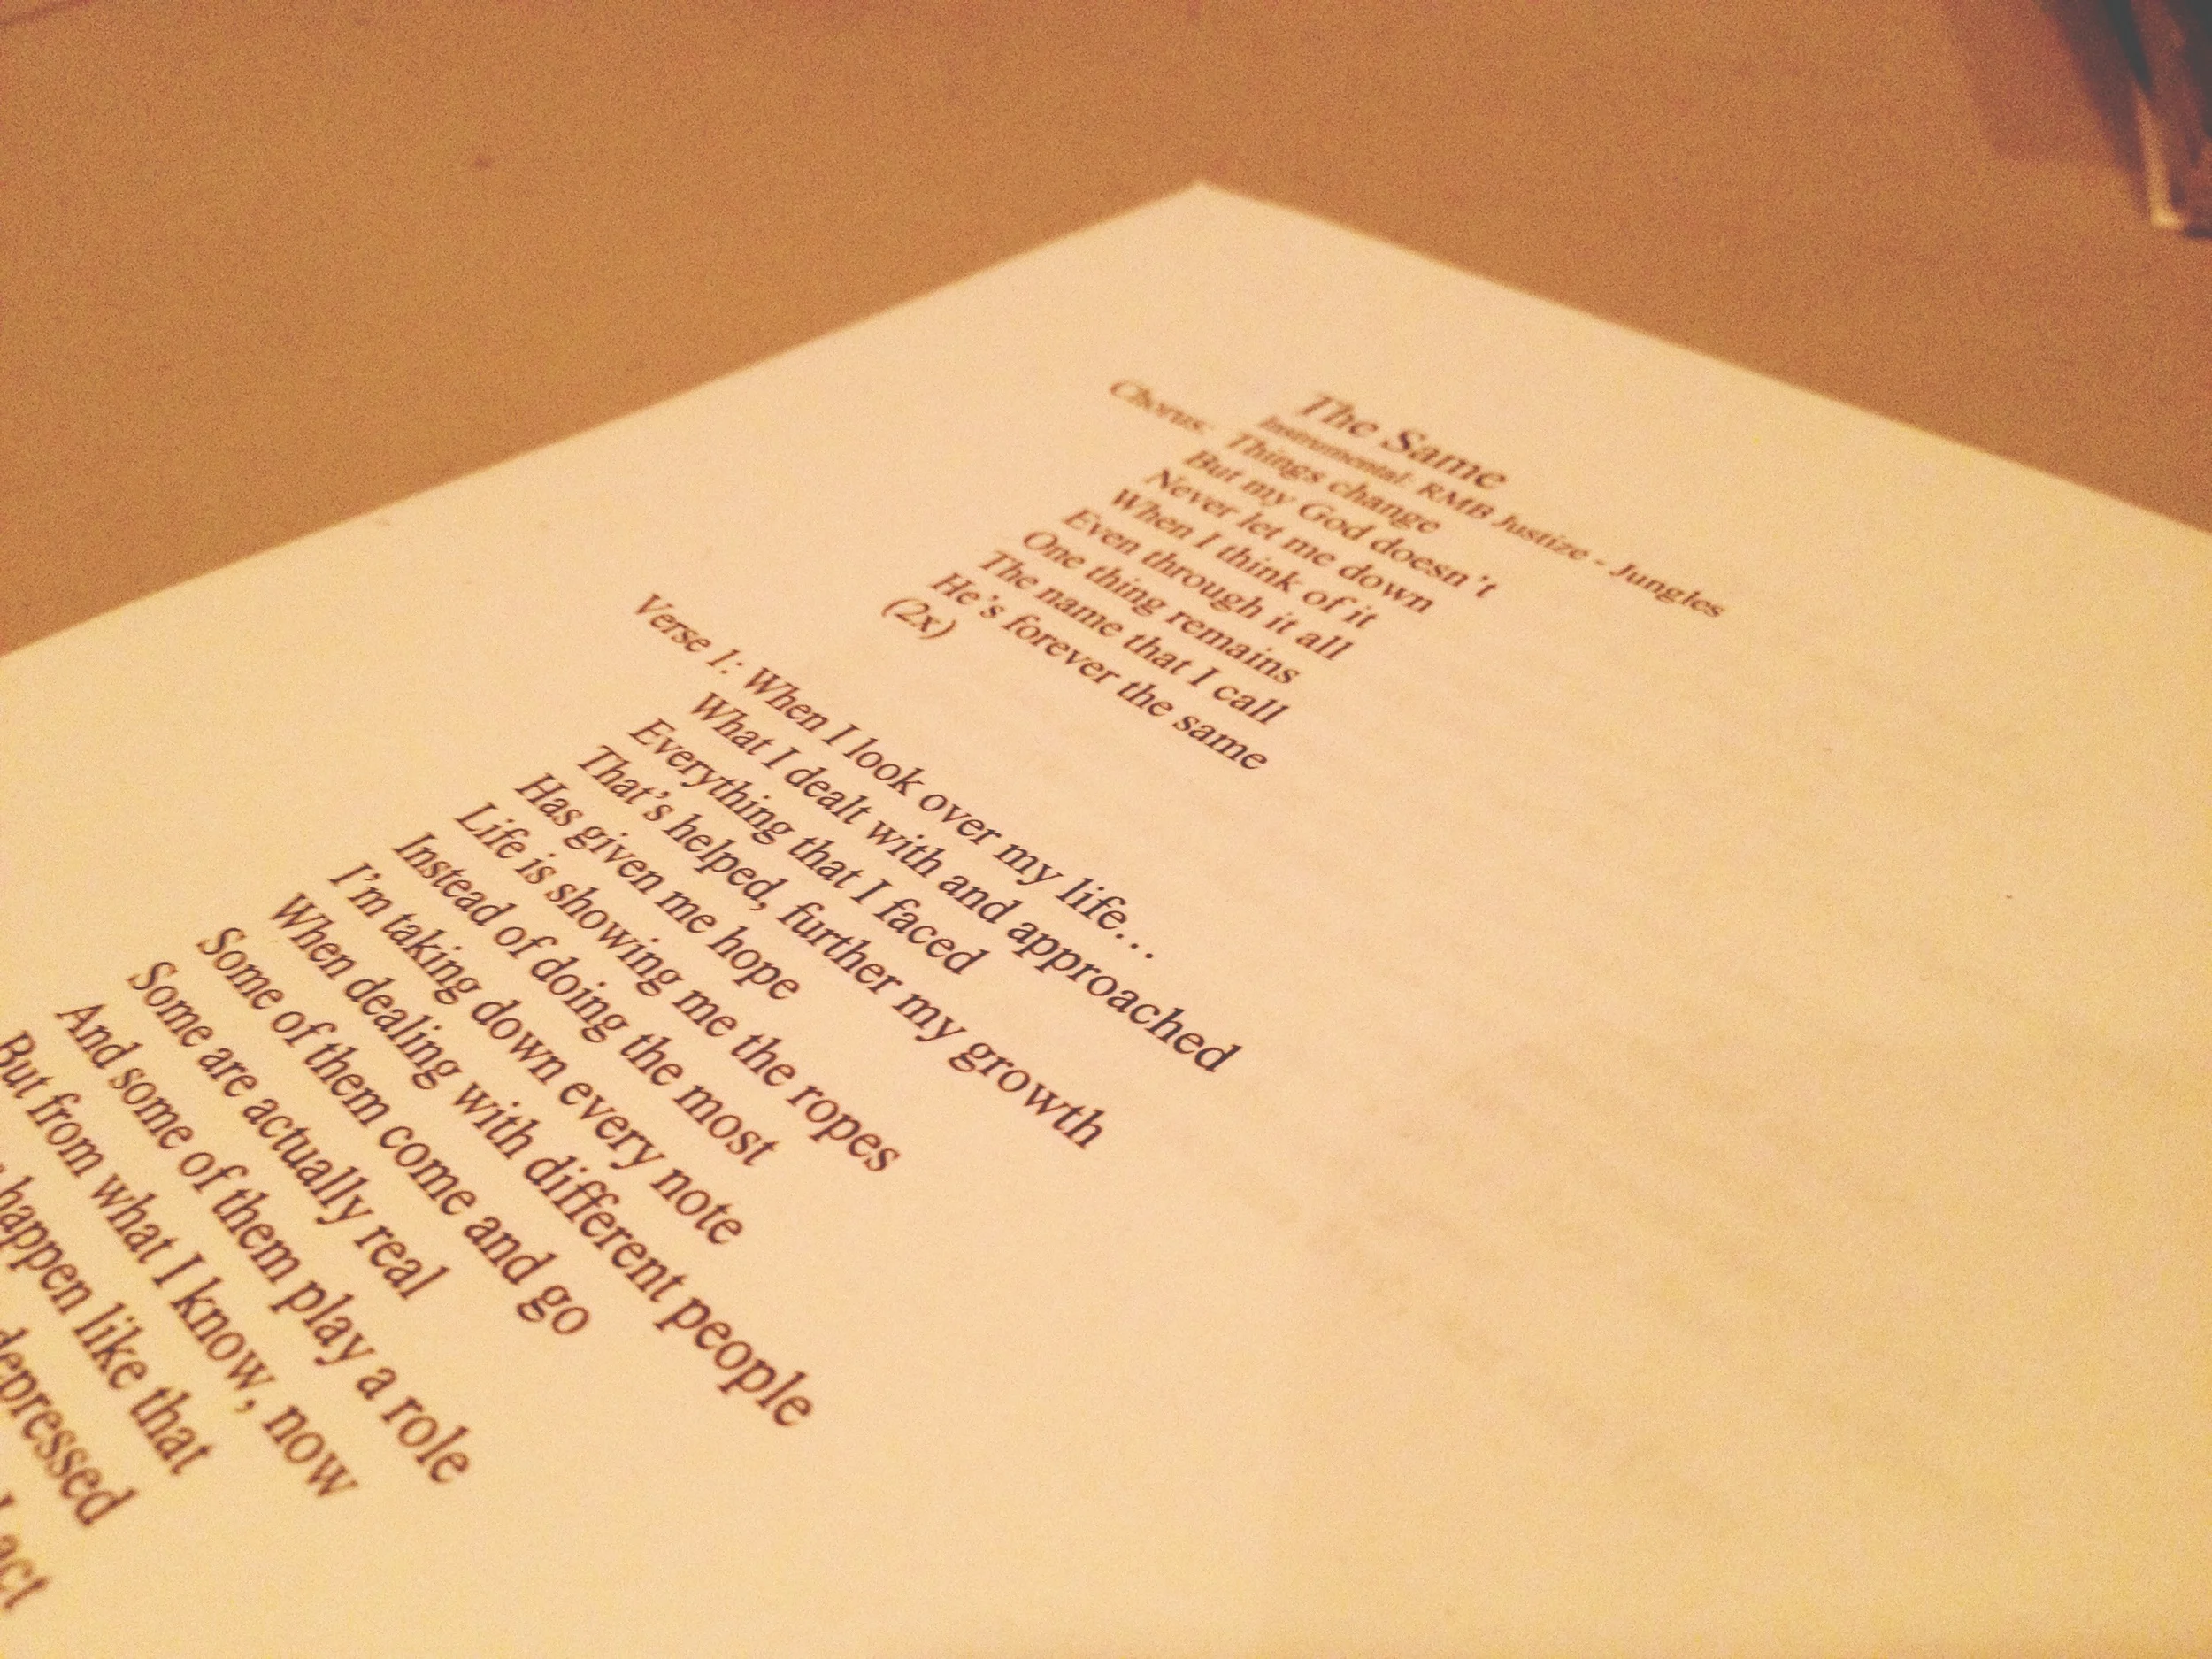 The Same
Instrumental: RMB Justize - Jungles
Chorus: Things change
But my God doesn't
Never let me down
When I think of it
Even through it all
One thing remains
The name that I call
He's forever the same
(2x)
Verse 1: When I look over my life…
What I dealt with and approached
Everything that I faced
That's helped, further my growth
Has given me hope
Life is showing me the ropes
Instead of doing the most
I'm taking down every note
When dealing with different people
Some of them come and go
Some are actually real
And some of them play a role
But from what I know, now
happen like that
depressed
act